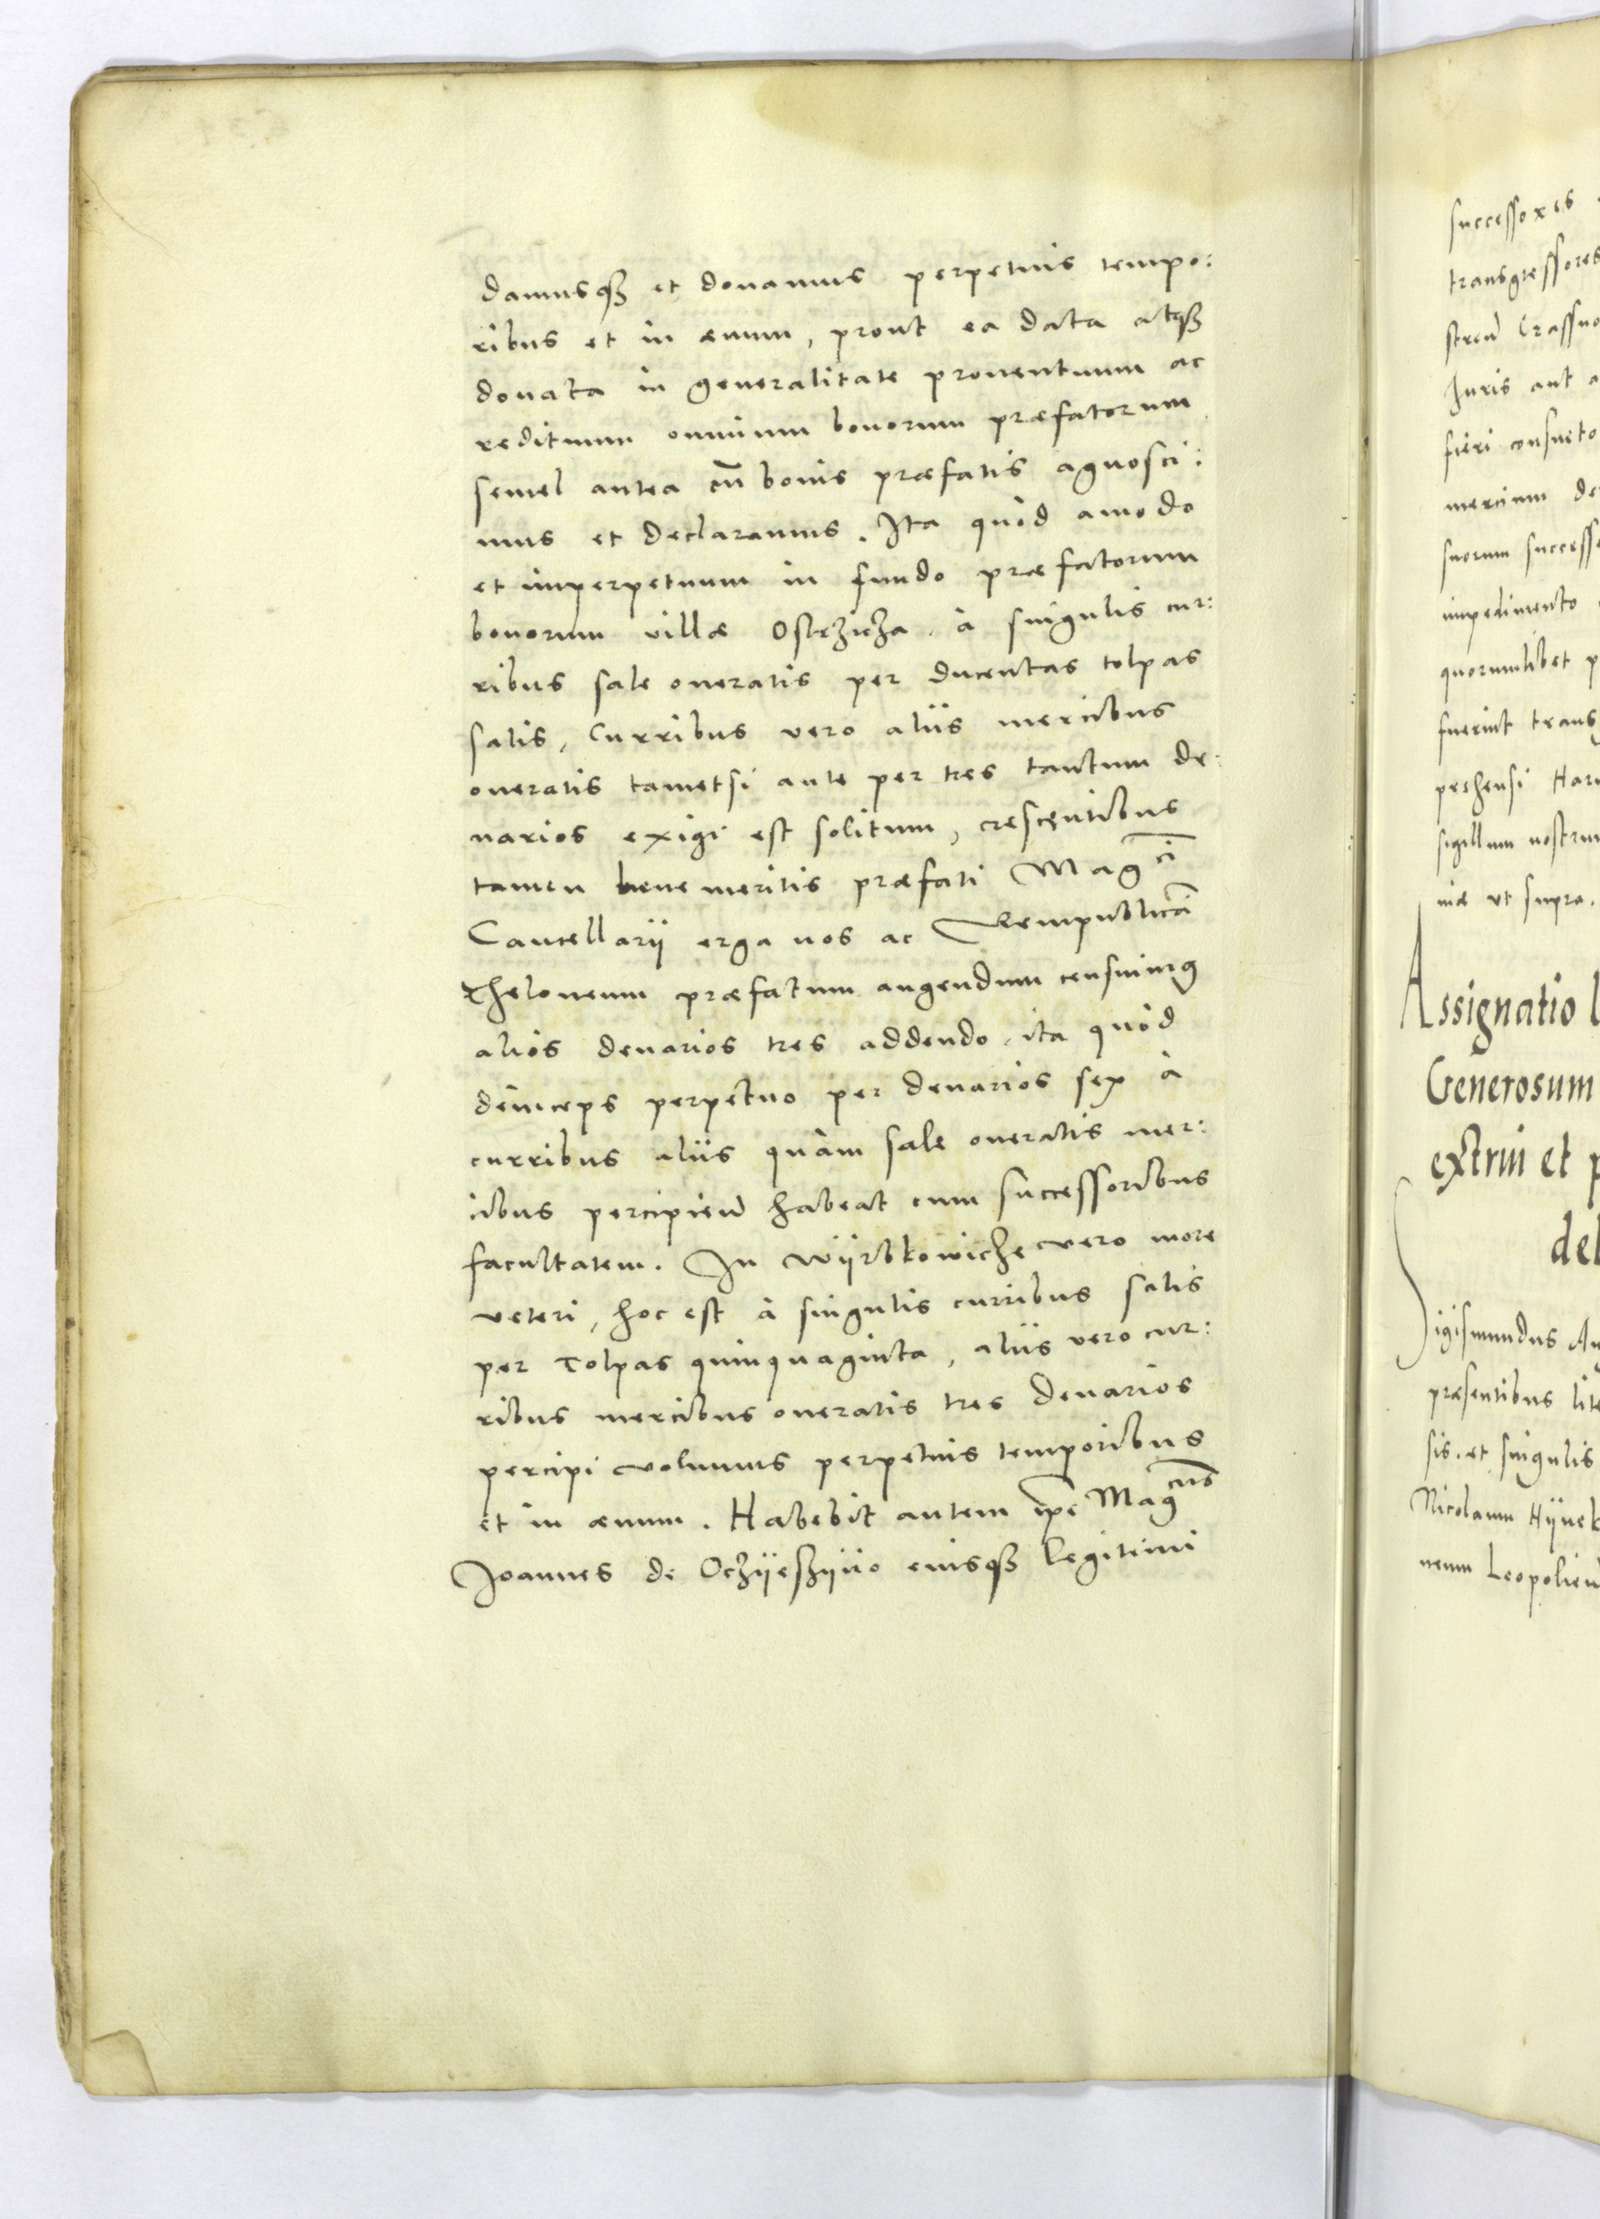 damusq3 et donamus perpetuis tempo:
ribus et in æuum, prout ea data atq3
donata in generalitate prouentuum ac
redituum omnium bonorum præfatorum
semel antea cū bonis præfatis agnosci:
mus et declaramus. Ita quòd amodo
et imperpetuum in fundo præfatorum
bonorum villæ à singulis cur:
ribus sale oneratis per ducentas tolpas
salis, Curribus vero aliis mercibus
oneratis tametsi ante per tres tantum de:
narios exigi est solitum, crescentibus
tamen bene meritis præfati Mag^ci
Cancellarij erga nos ac Rempublicā
theloneum præfatum augendum censuimus
alios denarios tres addendo, ita quòd
deinceps perpetuo per denarios sex à
curribus aliis quàm sale oneratis mer:
cibus percipiend habeat cum successoribus
facultatem. In Wyrbkowicze vero more
veteri, hoc est à singulis curribus salis
per tolpas quinquaginta, aliis vero cur:
ribus mercibus oneratis tres denarios
percipi volumus perpetuis temporibus
et in æuum. Habebit autem ip̄e Mag^cus
Joannes de Oczyeszyno eiusq3 legitimi
successores
transgressores
Juris aut a
fieri consueto
mercium de
suorum successo
impedimento
quorumlibet p
fuerint trans
prehensi Har
sigillum nostrum
næ ut supra.
Assignatio l
Generosum
extrui et p
del
Sigismundus Au
præsentibus lite
sis. et singulis
Nicolaum Hynek
neum Leopolien